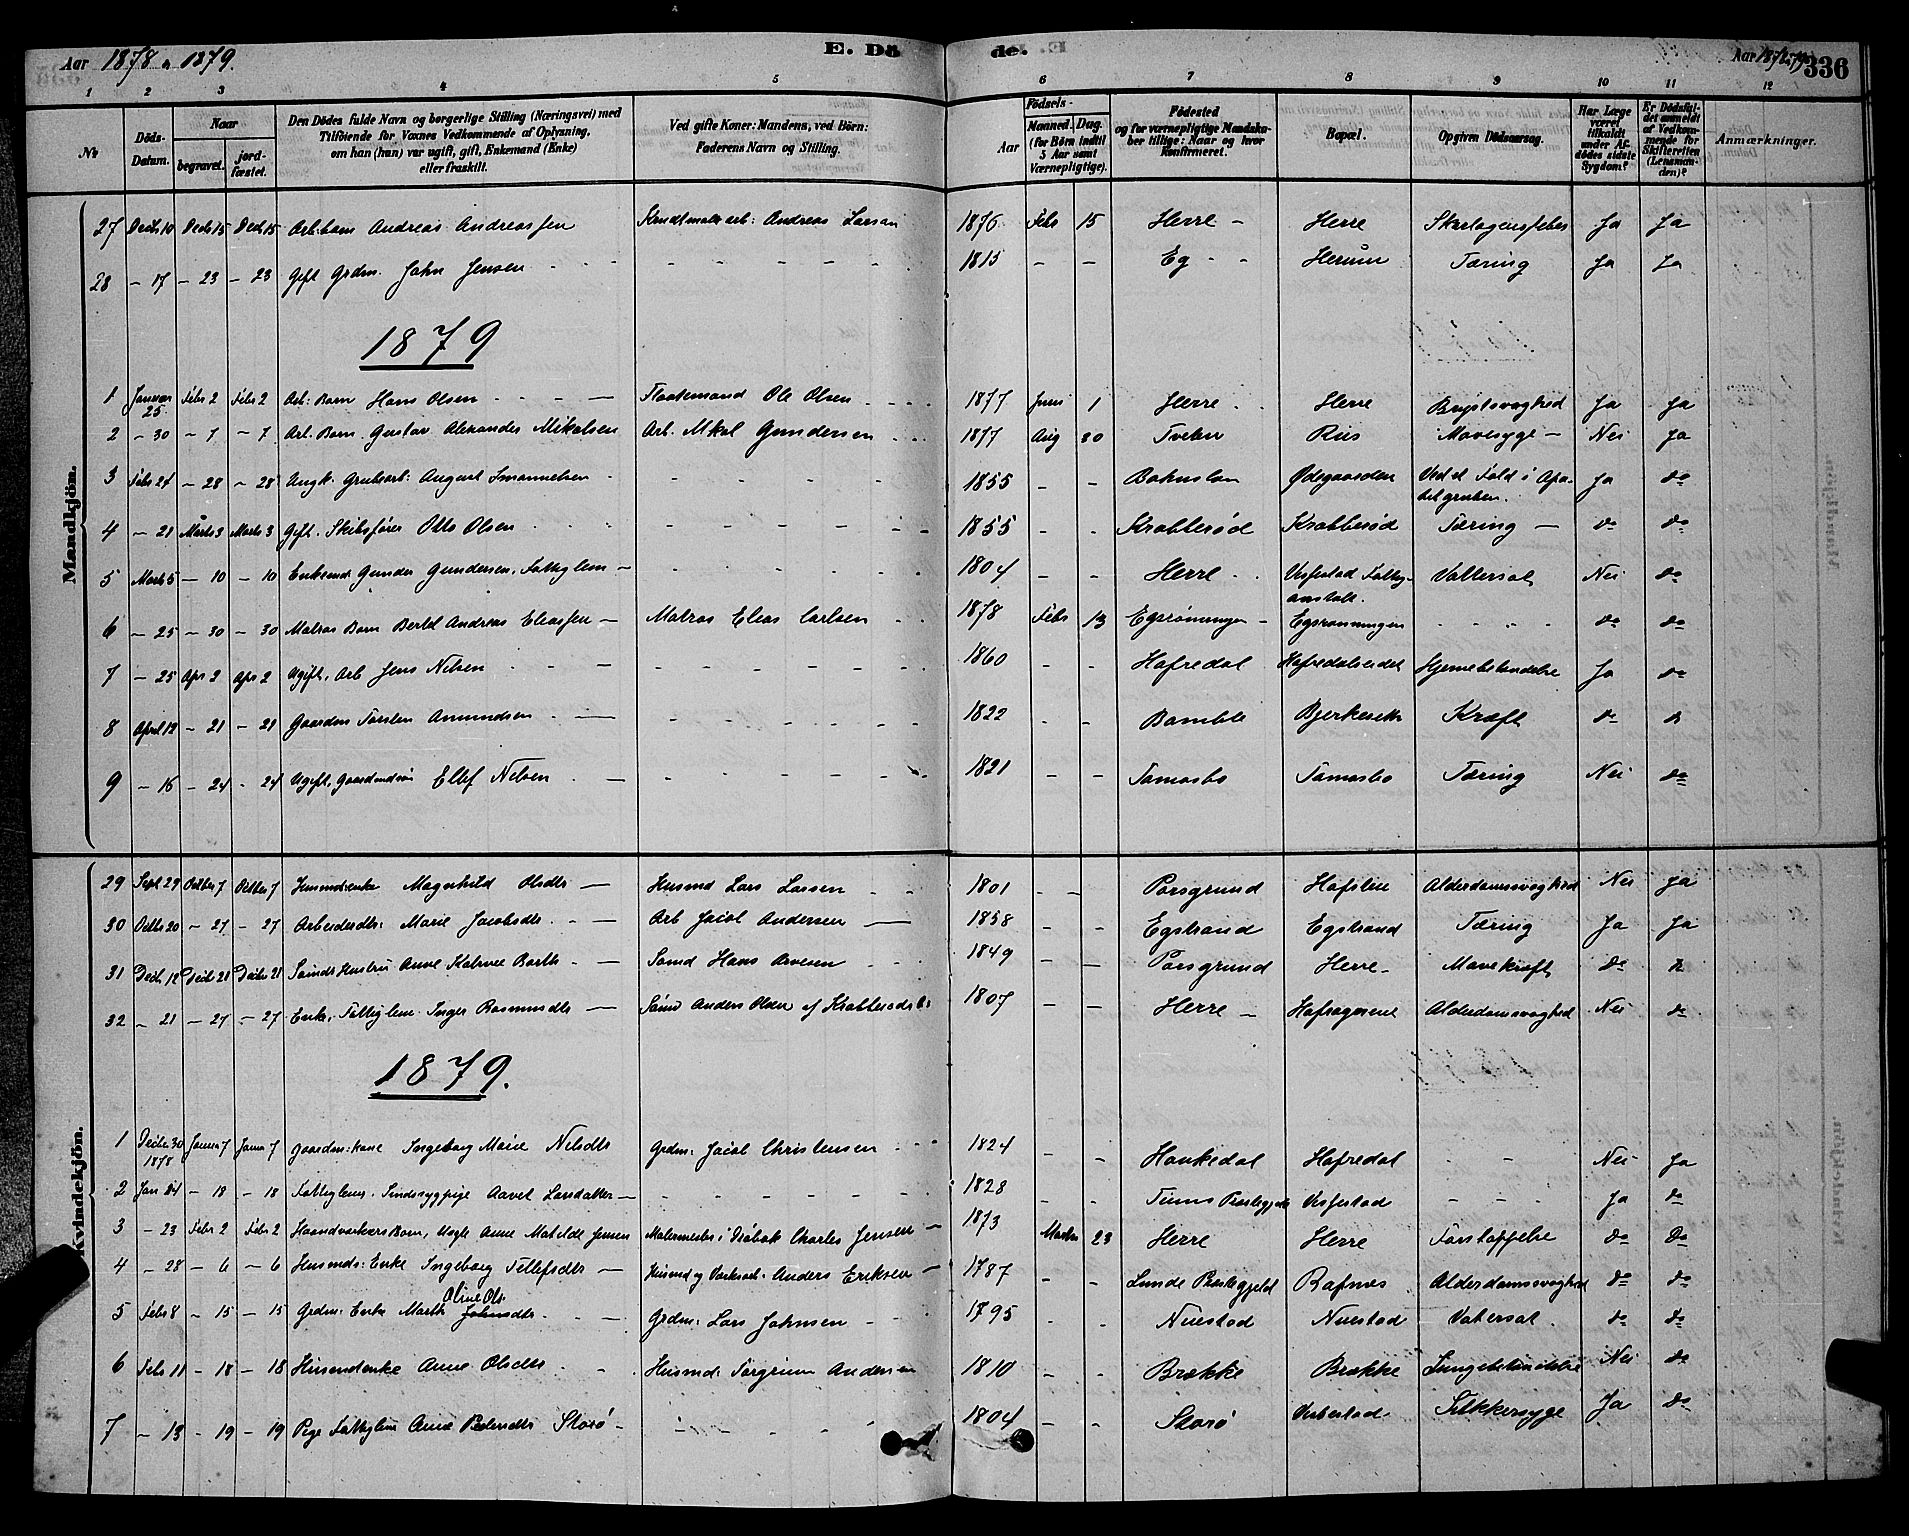 Aar 1878 o 1879. E. Döde. Aar 1878-79 336
1 2 3 4 5 6 7 8 9 10 11 12
№ Döds-Datum. Naar begravet. jordfæstet. Den Dödes fulde Navn og borgerlige Stilling (Næringsvei) med Tilföiende for Voxnes Vedkommende af Oplysning, om han (hun) var ugift, gift, Enkemand (Enke) eller fraskilt. Ved gifte Koner: Mandens, ved Börn: Faderens Navn og Stilling. Födsels- Aar Maaned. Dag. (for Börn indtil 5 Aar samt Værnepligtige). Födested og for værnepligtige Mandskaber tillige: Naar og hvor Konfirmeret. Bopæl. Opgiven Dödsaarsag. Har Læge været tilkaldt under Afdödes sidste Sygdom? Er Dödsfaldet anmeldt af Vedkommende for Skifteretten (Lensmanden)? Anmærkninger.
Mandkjön.
27 Decb 10 Decb 15 Decb 15 Arb. barn Andreas Andreassen arb: Andreas Larsen 1876 Febr 15 Herre - Herre Skarlagensfeber Ja Ja
28 - 17 - 23 - 23 Gift Grdm. John Jensen 1815 - - Eg - - Herum Tæring Ja Ja
1879
1 Januar 25 Febr 2 Febr 2 Arb: Barn Hans Olsen Flaatemand Ole Olsen 1877 Juni 1 Herre Herre Brystsvaghed Ja Ja
2 - 30 - 7 - 7 Arb. Barn Gustav Alexander Mikalsen Arb. Mikal Gundersen 1877 Aug 30 Tveten Riis Mavesyge - Nei Ja
3 Febr 24 - 28 - 28 Ungk. Grubearb: August Emanuelsen 1855 - - Bahuslen Ødegaarden Ved et Fald i Apatitgruben. Ja do
4 - 21 Marts 3 Marts 3 Gift. Skibsfører Otto Olsen 1855 - - Krabberød Krabberød Tæring - do do
5 Marts 5 - 10 - 10 Enkemd Gunder Gundersen, Fattiglem - 1804 - - Herre Vissestad Fattiganstalt. Vattersot Nei do
6 - 25 - 30 - 30 Matros Barn Bertel Andreas Eliassen - Matros Elias Carlsen 1878 Febr 13 Egsrønningen - Egsrønningen do do
7 - 25 Apr 2 Apr 2 Ugift, Arb Jens Nilsen 1860 - - Hafredal Hafredalseidet Hjernebetændelse Ja do
8 April 12 - 21 - 21 Gaardm Torsten Amundsen 1822 - - Bamble Bjerkesett Kræft do do
9 - 16 - 24 - 24 Ugift, Ellef Nilsen 1821 - - Tamasbo Tamasbo Tæring Nei do
Kvindekjön.
29 Sept 29 Octber 7 Octber 7 Husmdsenke Magnhild Olsdtr - Husmd Lars Larsen 1801 - - Porsgrund Hafslien Alderdomssvaghed Nei Ja
30 Octbr 20 - 27 - 27 Arbeiderdtr: Marie Jacobsdtr Arb Jacob Andersen - 1858 - - Egstrand Egstrand Tæring Ja Ja
31 Decb. 12 Decbr 21 Decbr 21 Sømds Hustru Anne Katrine Barth - Sømd Hans Arvesen 1849 - - Porsgrund Herre - Mavekræft do
32 - 21 - 27 - 27 Enke, Fattiglem Inger Rasmusdtr - Sømd Anders Olsen af Krabberød 1807 - - Herre - Alderdomssvaghed Nei do
1879.
1 Decbr 30 1878 Januar 7 Janua 7 Gaardm: kone Ingeborg Marie Nilsdtr Grdm: Jacob Christensen 1824 - - Haukedal Hafredal - - Nei Ja
2 Jan 14 - 18 - 18 Fattiglem. Sindssygpige Aavet Larsdatter - 1828 - - Tinns Præstegjeld Vissestad - - - Ja do
3 - 23 Febr 2 Febr 2 Haandverkers Barn, Anne Mathilde Jensen Malermester i Drøbak Charles Jensen - 1873 Marts 23 Herre Herre Forstoppelse do Do
4 - 28 - 6 - 6 Husmds: Enke Ingeborg Tellefsdtr - Husmd og Verksarb. Anders Eriksen - 1787 - - Lunde Præstegjeld Rafnes Alderdomssvaghed do do
5 Febr 8 - 15 - 15 Grdm: Enke Marth Johnsdtr Oline Ols Grdm: Lars Johnsen 1795 - - Nuestad Nuestad Vatersot. do do
6 Febr 11 - 18 - 18 Husmdenke Anne Olsdtr Husmd: Torgrim Andersen 1810 - - Brække Brække Lungebetændelse Nei do
7 - 13 - 19 - 19 Pige Fattiglem Anne Pedersdtr Storø - 1804 - - Storø Vissestad Slikkersyge Ja do